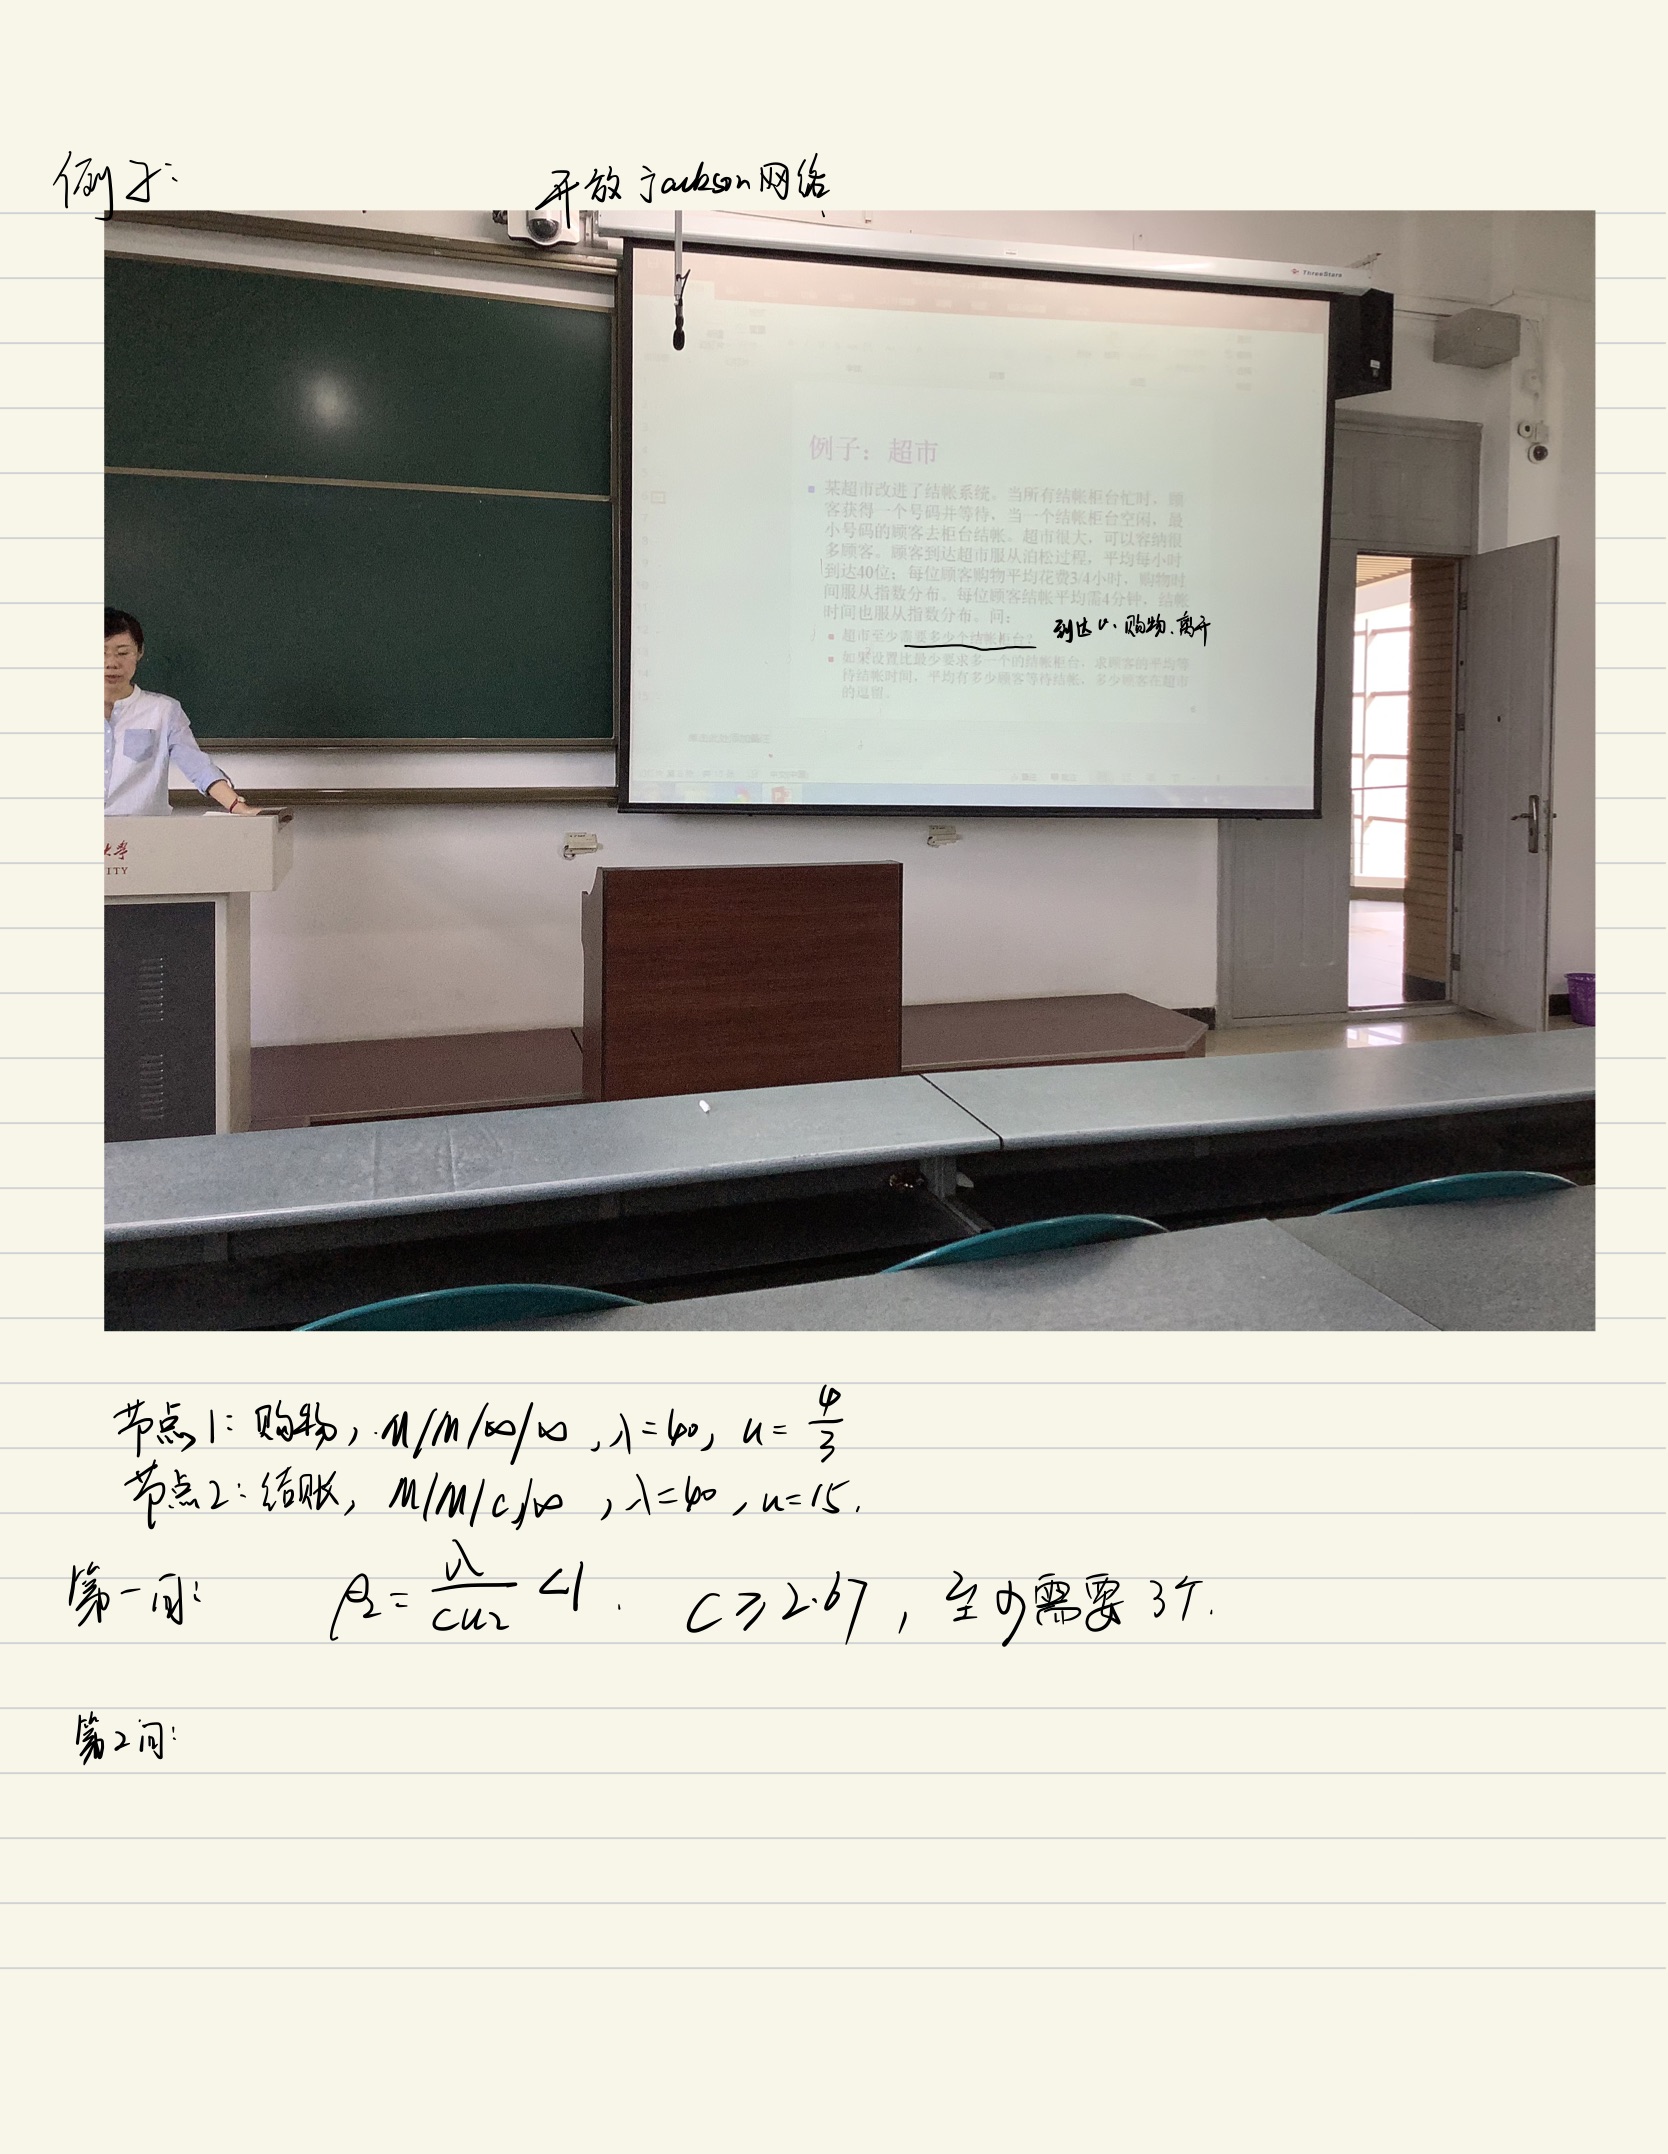 例子:
开放Jackson网络
ThreeStars
例子：超市
某超市改进了结帐系统。当所有结帐柜台忙时，顾
客获得一个号码并等待，当一个结帐柜台空闲，最
小号码的顾客去柜台结帐。超市很大，可以容纳很
多顾客。顾客到达超市服从泊松过程，平均每小时
到达40位；每位顾客购物平均花费3/4小时，购物时
间服从指数分布。每位顾客结帐平均需4分钟，结帐
时间也服从指数分布。问：
超市至少需要多少个结帐柜台？
到达 购物、离开
如果设置比最少要求多一个的结帐柜台，求顾客的平均等
待结帐时间，平均有多少顾客等待结帐，多少顾客在超市
的逗留。
单击此处添加备注
大学
ITY
节点1: 购物, M/M/∞/∞, λ=40, u=4/3
节点2: 结账, M/M/c/∞, λ=40, u=15.
第一问: ρ₂=λ/cu₂<1. C≥2.67, 至少需要3个.
第2问: